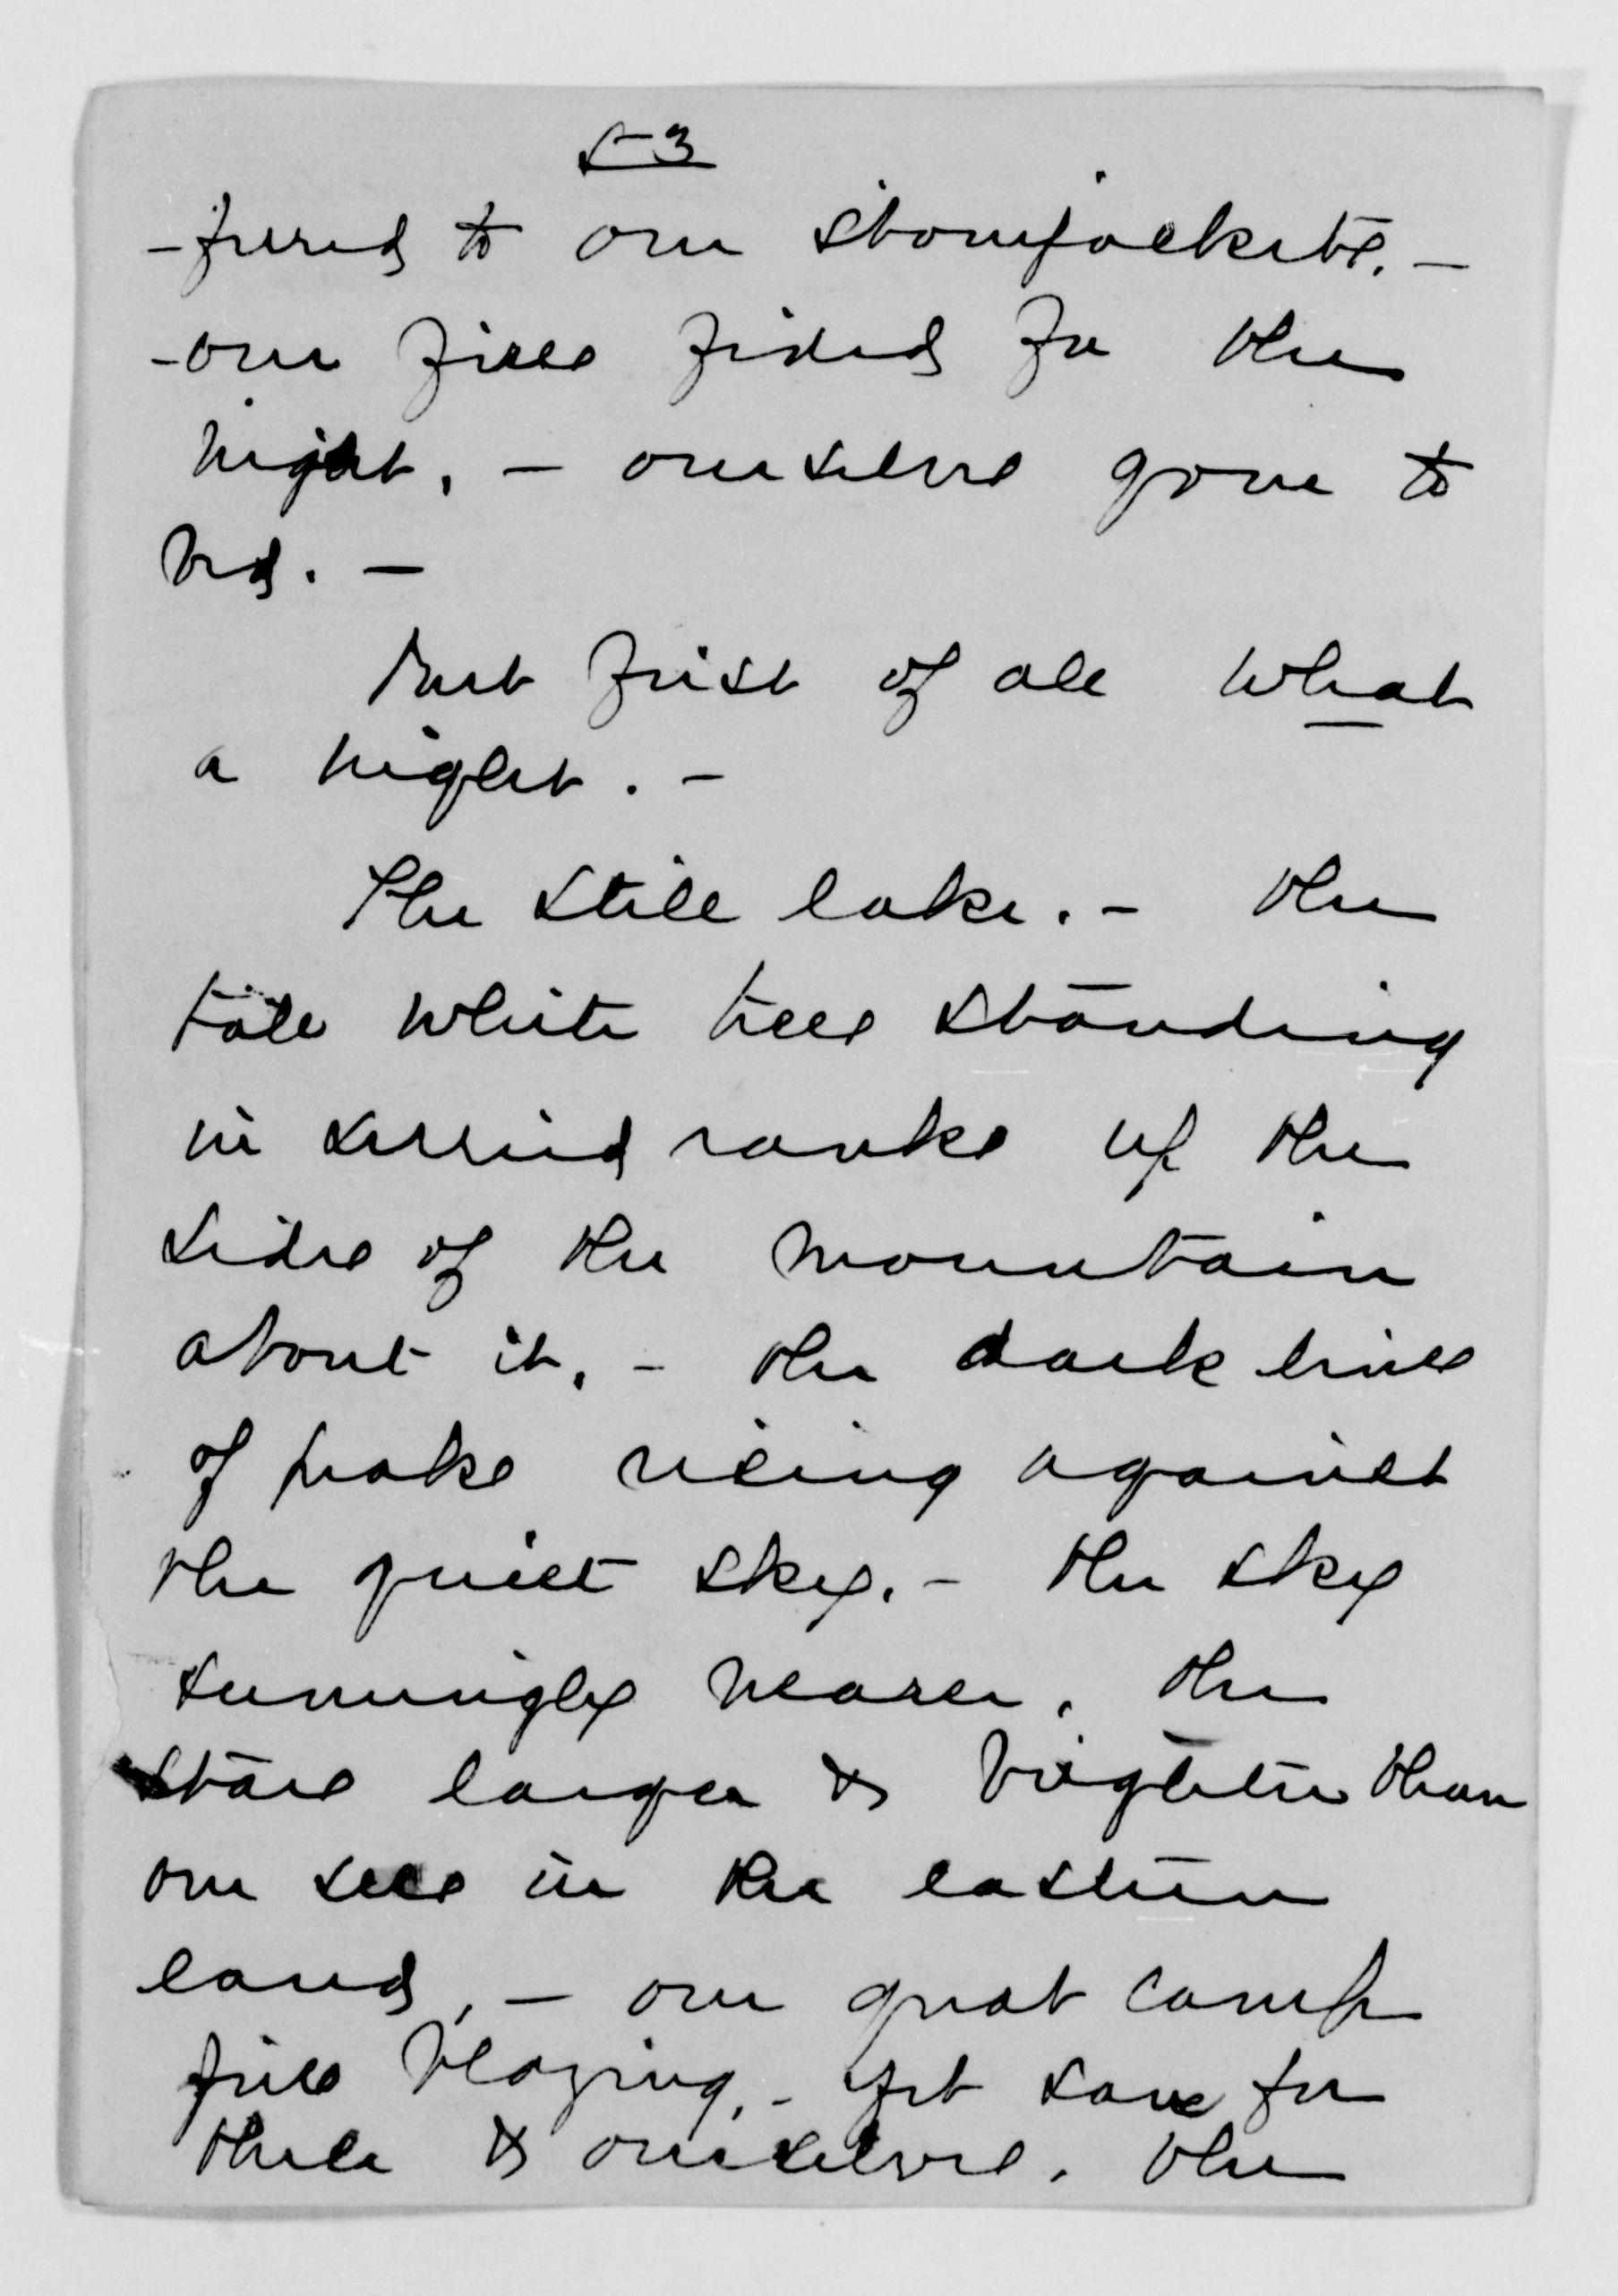 53
-ferred to our stormjackets. -
- our fires fixed for the
night, - ourselves gone to
bed. -
But first of all what
a night. -
The still lake. - the
tall white trees standing
in serried ranks up the
sides of the mountain
about it, - the dark lines
of peaks rising against
the quiet sky. - the sky
seemingly nearer, the
stars larger & brighter than
one sees in the eastern
lands, - our great camp
fires blazing, - yet save for
these & ourselves, the